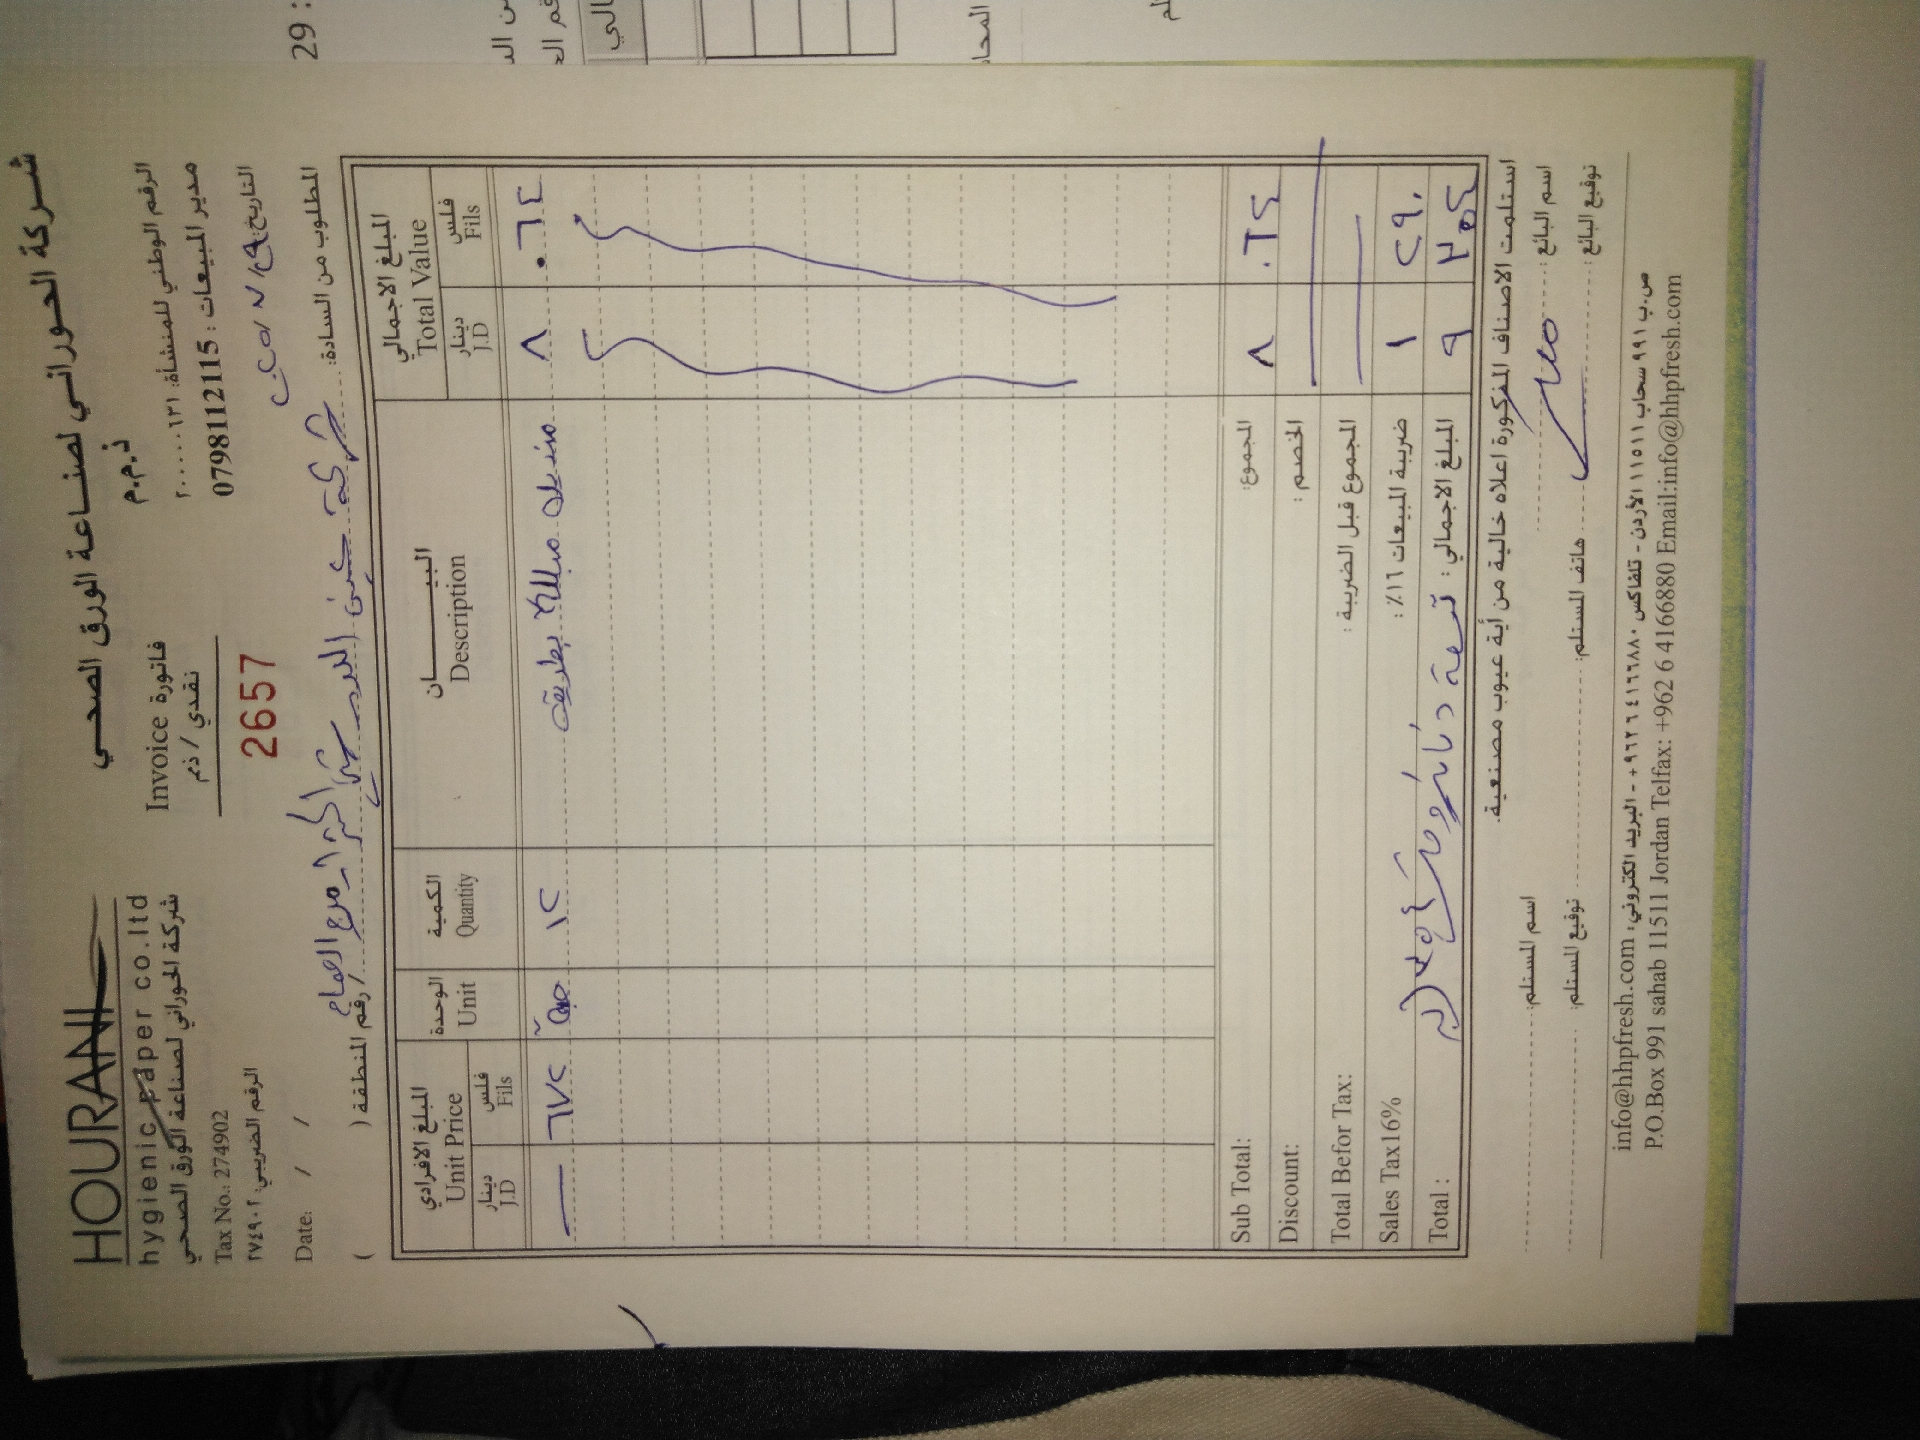 HOURANI
hygienic paper co.ltd
شركة الحوراني لصناعة الورق الصحي
Tax No.: 274902
الرقم الضريبي: ٢٧٤٩٠٢
Date: / /
شركة الحوراني لصناعة الورق الصحي
ذ.م.م
Invoice فاتورة
نقدي / ذمم
2657
الرقم الوطني للمنشأة: ٢٠٠٠٠٠١٣١
مدير المبيعات : 0798112115
التاريخ:
المطلوب من السادة: شركة
/ رقم المنطقة ( )
المبلغ الافرادي
Unit Price
دينار
J.D
فلس
Fils
الوحدة
Unit
الكمية
Quantity
البيـــــــان
Description
المبلغ الاجمالي
Total Value
دينار
J.D
فلس
Fils
— ٦٧٢ ١٢ منديل مبللة بطريق ٨ ٠٦٤
Sub Total: المجموع: ٨ ٠٦٤
Discount: الخصم :
Total Befor Tax: المجموع قبل الضريبة :
Sales Tax16% ضريبة المبيعات ١٦٪ : ١ ٢٩٠
Total : المبلغ الاجمالي : تسعة دنانير و ٩ ٣٥٤
استلمت الاصناف المذكورة اعلاه خالية من أية عيوب مصنعية.
اسم المستلم:
اسم البائع :
توقيع المستلم:
هاتف المستلم:
توقيع البائع :
info@hhpfresh.com :ص.ب ٩٩١ سحاب ١١٥١١ الأردن - تلفاكس ٤١٦٦٨٨٠ ٦ ٩٦٢+ - البريد الكتروني
P.O.Box 991 sahab 11511 Jordan Telfax: +962 6 4166880 Email:info@hhpfresh.com
29 :